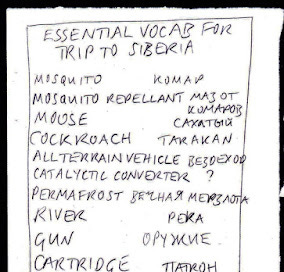 ESSENTIAL VOCAB FOR
TRIP TO SIBERIA
MOSQUITO КОМАР
MOSQUITO REPELLANT МАЗ ОТ
КОМАРОВ
MOUSE САХАТЫЙ
COCKROACH TARAKAN
ALL TERRAIN VEHICLE ВЕЗДЕХОД
CATALYCTIC CONVERTER ?
PERMAFROST ВЕЧНАЯ МЕРЗЛОТА
RIVER РЕКА
GUN ОРУЖИЕ
CARTRIDGE ПАТРОН